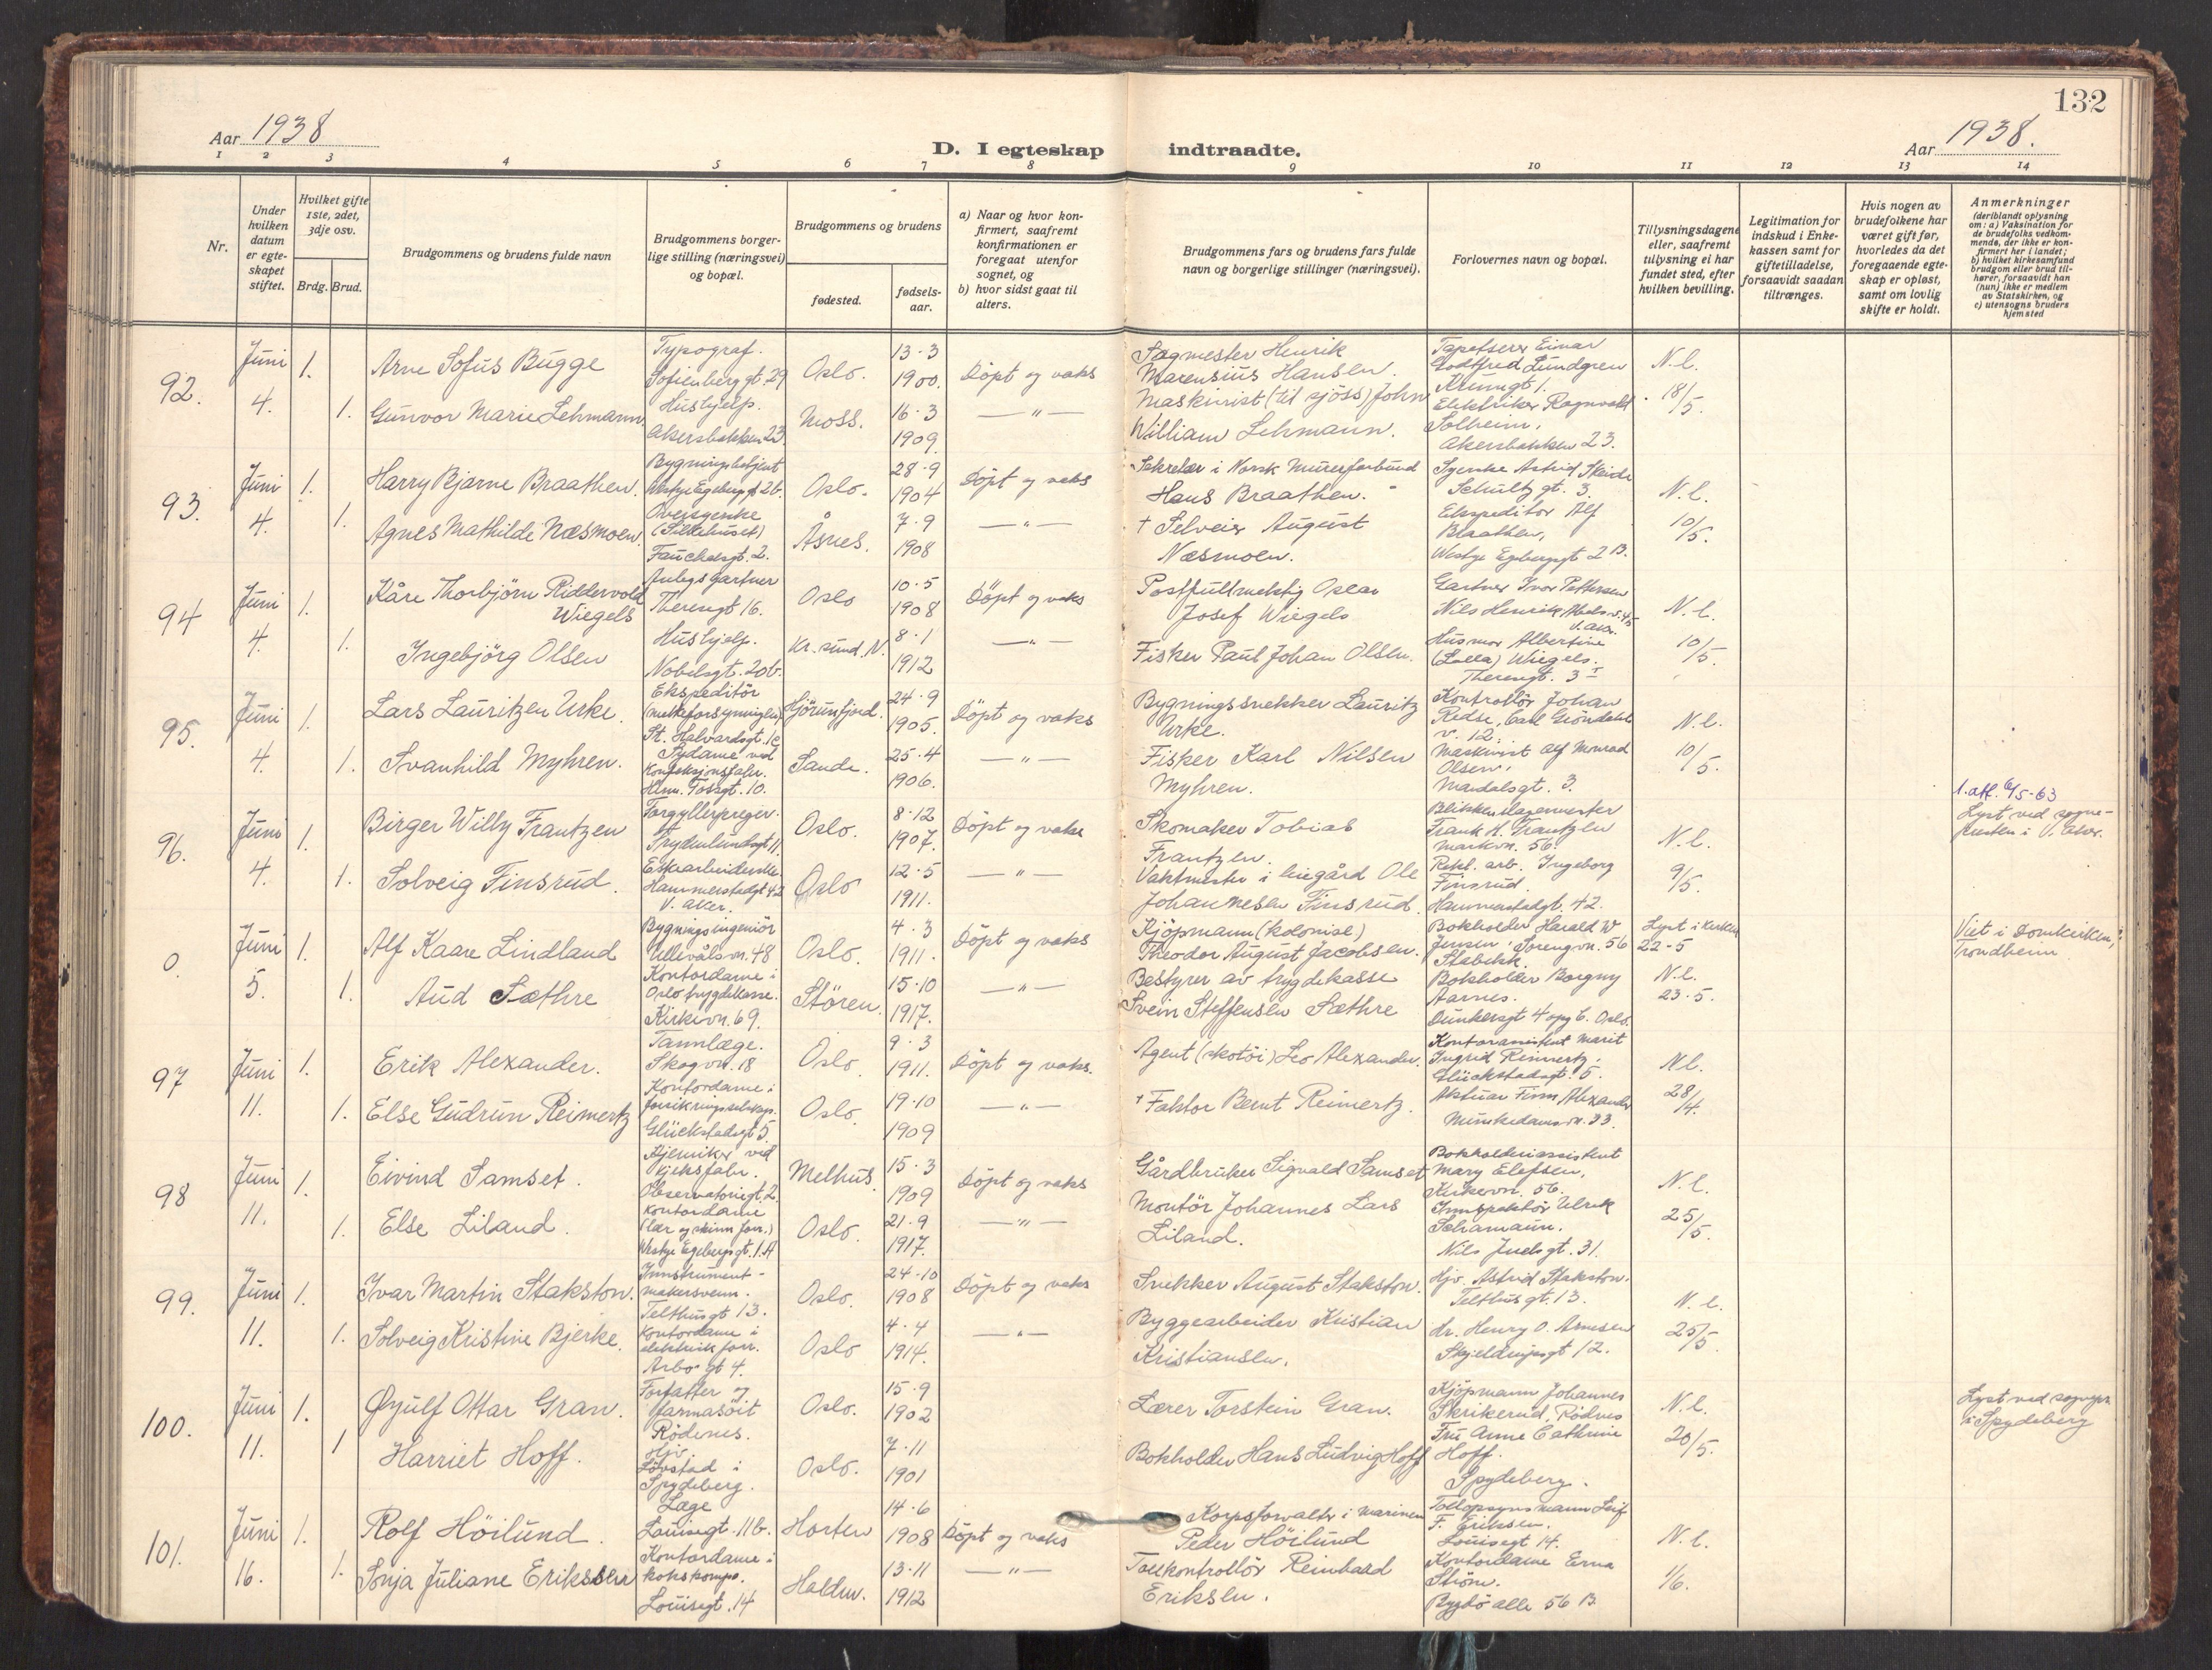 132
Aar 1938
D. I egteskap indtraadte.
Aar 1938.
1 2 3 4 5 6 7 8 9 10 11 12 13 14
Nr.
Under hvilken datum er egteskapet stiftet.
Hvilket gifte 1ste, 2det, 3dje osv.
Brdg. Brud.
Brudgommens og brudens fulde navn
Brudgommens borgerlige stilling (næringsvei) og bopæl.
Brudgommens og brudens
fødested.
fødselsaar.
a) Naar og hvor konfirmert, saafremt konfirmationen er foregaat utenfor sognet, og
b) hvor sidst gaat til alters.
Brudgommens fars og brudens fars fulde navn og borgerlige stillinger (næringsvei).
Forlovernes navn og bopæl.
Tillysningsdagene eller, saafremt tillysning ei har fundet sted, efter hvilken bevilling.
Legitimation for indskud i Enkekassen samt for giftetilladelse, forsaavidt saadan tiltrænges.
Hvis nogen av brudefolkene har været gift før, hvorledes da det foregaaende egteskap er opløst, samt om lovlig skifte er holdt.
Anmerkninger
(deriblandt oplysning om: a) Vaksination for de brudefolks vedkommende, der ikke er konfirmert her i landet; b) hvilket kirkesamfund brudgom eller brud tilhører, forsaavidt han (hun) ikke er medlem av Statskirken, og c) utensogns bruders hjemsted
92. Juni 4. 1. Arne Sofus Bugge Typograf. Sofienberggt. 29 Oslo. 13-3 1900. Döpt og vaks Sagmester Henrik Marensius Hansen. Tapetserer Einar Godtfred Lundgren N.l.
1. Gunvor Marie Lehmann Hushjelp. Akersbakken 23. Moss. 16-3 1909. —"— Maskinist (til sjöss) John William Lehmann. Elektriker Ragnvald Solheim, Akersbakken 23. 18/5.
93. Juni 4. 1. Harry Bjarne Braathen. Bygningsbetjent Westye Egebergsgt 2b. Oslo. 28-9 1904 Döpt og vaks Sekretær i Norsk Murerforbund Hans Braathen. Schultzgt. 3. N.l.
1. Agnes Mathilde Næsmoen. (Silkehuset) Fauchaldsgt. 2. Åsnes. 7-9 1908 —"— † Selveier August Næsmoen. Ekspeditör Alf Braathen, Westye Egebergsgt 2 B. 10/5.
94 Juni 4. 1. Kåre Thorbjörn Riddervold Wiegels Anlegsgartner Theresgt 16. Oslo 10-5 1908 Döpt og vaks Postfullmektig Oscar Josef Wiegels Gartner Ivar Pettersen Nils Henrik Abels v. 45 V. Aker. N.l.
1. Ingebjörg Olsen Hushjelp. Nobelsgt. 20b. Kr.sund. N. 8-1 1912 —"— Fisker Paul Johan Olsen. Husmor Albertine (Lolla) Wiegels. Theresgt. 3 I 10/5.
95. Juni 4. 1. Lars Lauritzen Urke. Ekspeditör (melkeforsyningen) St. Halvardsgt. 1c Hjörundfjord. 24-9 1905. Döpt og vaks Bygningssnekker Lauritz Urke. Kontrollör Johan Redse, Carl Gröndahls v. 12. N.l.
1. Svanhild Myhren. Sydame ved konfeksjonsfabr. Sande. 25-4 1906. —"— Fisker Karl Nilsen Myhren. Maskinist Alf Monrad Olsen. Mandalsgt. 3. 10/5.
96. Juni 4. 1. Birger Willy Frantzen Frydenlundsgt 11. Oslo. 8-12 1907. Döpt og vaks Skomaker Tobias Frantzen. Blikkenslagermester Frank H. Frantzen Markvn. 56. N.l. 1.att. 6/5-63 Lyst ved sognepresten i V. Aker.
1. Solveig Finsrud. Eskearbeiderske Hammerstadgt 42 V. Aker. Oslo 12-5 1911. —"— Vaktmester i leiegård Ole Johannesen Finsrud. Rekl. arb. Ingeborg Finsrud. Hammerstadgt. 42. 9/5.
0. Juni 5. 1. Alf Kaare Lindland Bygningsingeniör Ullevålsvn. 48 Oslo. 4-3 1911. Döpt og vaks Kjöpmann (kolonial) Theodor August Jacobsen. Bokholder Harald W Jensen, Sorengvn. 56 Stabekk. Lyst i kirken 22-5 Viet i Domkirken, Trondheim
1. Aud Sæthre Kontordame i Oslo trygdekasse. Kirkevn. 69. Stören. 15-10 1917. —"— Bestyrer av trygdekasse Svein Steffensen Sæthre Bokholder Borgny Aarnes. Dunkersgt 4 opg C. Oslo. N.l. 23-5.
97 Juni 11. 1. Erik Alexander. Tannlæge. Skogvn. 18 Oslo. 9-3 1911. Döpt og vaks. Agent (skotöi) Leo Alexander. Kontorassistent Marit Ingrid Reimertz. Glückstadsgt. 5. N.l.
1. Else Gudrun Reimertz Kontordame i forsikringsselskap. Glückstadsgt 5 Oslo. 19-10 1909 —"— † Faktor Bernt Reimertz. Aktuar Finn Alexander Munkedamsvn. 33. 28/4.
98 Juni 11. 1. Eivind Samset. Kjemiker ved kjeksfabr. Observatoriegt. 2 Melhus. 15-3 1909 Döpt og vaks Gårdbruker Sigvald Samset Bokholderiassistent Mary Elefsen, Kirkevn. 56. N.l.
1. Else Liland. Kontordame (lær og skinn forr.) Westye Egebergsgt. 1 A Oslo. 21-9 1917. —"— Montör Johannes Lars Liland. Innspektör Ulrik Nils Juelsgt. 31. 25/5.
99. Juni 11. 1. Ivar Martin Stakston. Innstrumentmakersvenn. Telthusgt 13. Oslo. 24-10 1908 Döpt og vaks Snekker August Stakston. Hjv. Astrid Stakston. Telthusgt. 13. N.l.
1. Solveig Kristine Bjerke. Kontordame i elektrisk forr. Arbogt 4. Oslo 4-4 1914. —"— Byggearbeider Kristian Kristiansen. Hr. Henry O. Arnesen Skjeldrupsgt 12. 25/5.
100. Juni 11. 1. Øyulf Ottar Gran. Forfatter og farmasöit Rödenes. Oslo. 15-9 1902 Lærer Torstein Gran. Kjöpmann Johannes Skrikerud, Rödnes N.l. Lyst ved sognepr. i Spydeberg
1 Harriet Hoff. Hjv. Lövstad i Spydeberg. Oslo. 7-11 1901 Bokholder Hans Ludvig Hoff Fru Anne Cathrine Hoff. Spydeberg. 20/5.
101. Juni 16. 1. Rolf Höilund. Læge Louisegt. 11b. Horten 14-6 1908 Döpt og vaks Korpsforvalter i marinen Peder Höilund Tollopsynsmann Leif F. Eriksen. Louisegt 14. N.l.
1. Sonja Juliane Eriksen Kontordame i kokskomp. Louisegt. 14 Halden. 13-11 1912 —"— Tollkontrollör Reinhard Eriksen. Kontordame Erna Ström. Bygdö alle 56 B. 1/6.